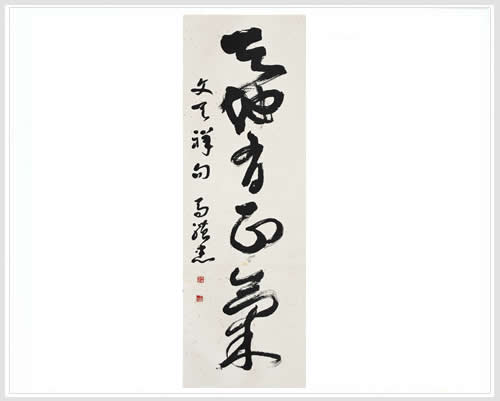 天地有正氣
文天祥句 馬